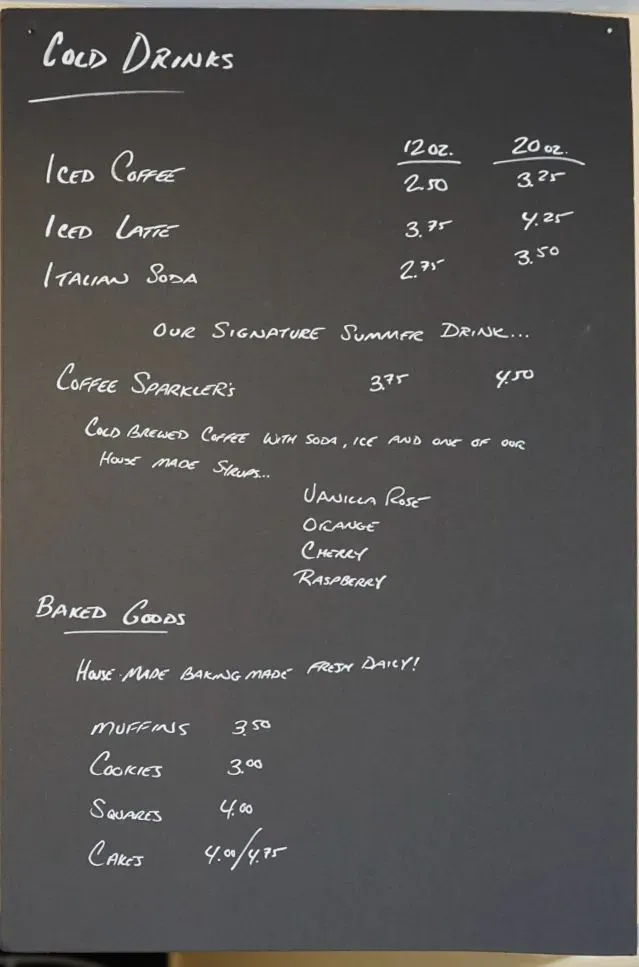 COLD DRINKS
12 oz. 20 oz.
ICED COFFEE 2.50 3.25
ICED LATTE 3.75 4.25
ITALIAN SODA 2.75 3.50
OUR SIGNATURE SUMMER DRINK...
COFFEE SPARKLER'S 3.75 4.50
COLD BREWED COFFEE WITH SODA, ICE AND ONE OF OUR
HOUSE MADE SYRUPS...
VANILLA ROSE
ORANGE
CHERRY
RASPBERRY
BAKED GOODS
HOUSE-MADE BAKING MADE FRESH DAILY!
MUFFINS 3.50
COOKIES 3.00
SQUARES 4.00
CAKES 4.00/4.75